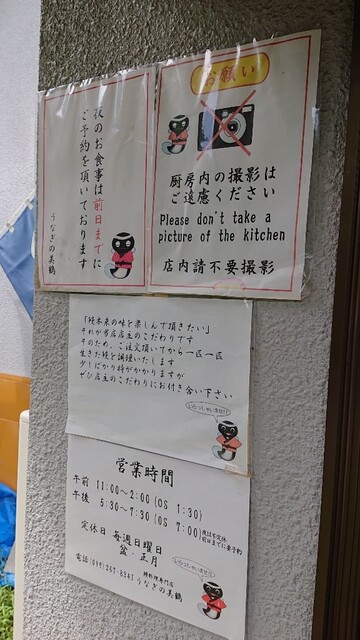 夜のお食事は前日までに
ご予約を頂いております
うなぎの美鶴
お願い
厨房内の撮影は
ご遠慮ください
Please don't take a
picture of the kitchen
店内請不要撮影
「鰻本来の味を楽しんで頂きたい」
それが当店店主のこだわりです
そのため、ご注文頂いてから一匹一匹
生きた鰻を調理いたします
少しばかり時がかかりますが
ぜひ店主のこだわりにお付き合い下さい
いらっしゃいませ!!
営業時間
午前 11:00～2:00 (OS 1:30)
午後 5:30～7:30 (OS 7:00)
前日までに要予約
定休日 毎週日曜日
盆・正月
鰻料理専門店
電話 うなぎの美鶴
いらっしゃいませ!!